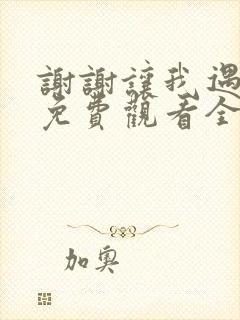 謝謝讓我遇
免費觀看全
加奧